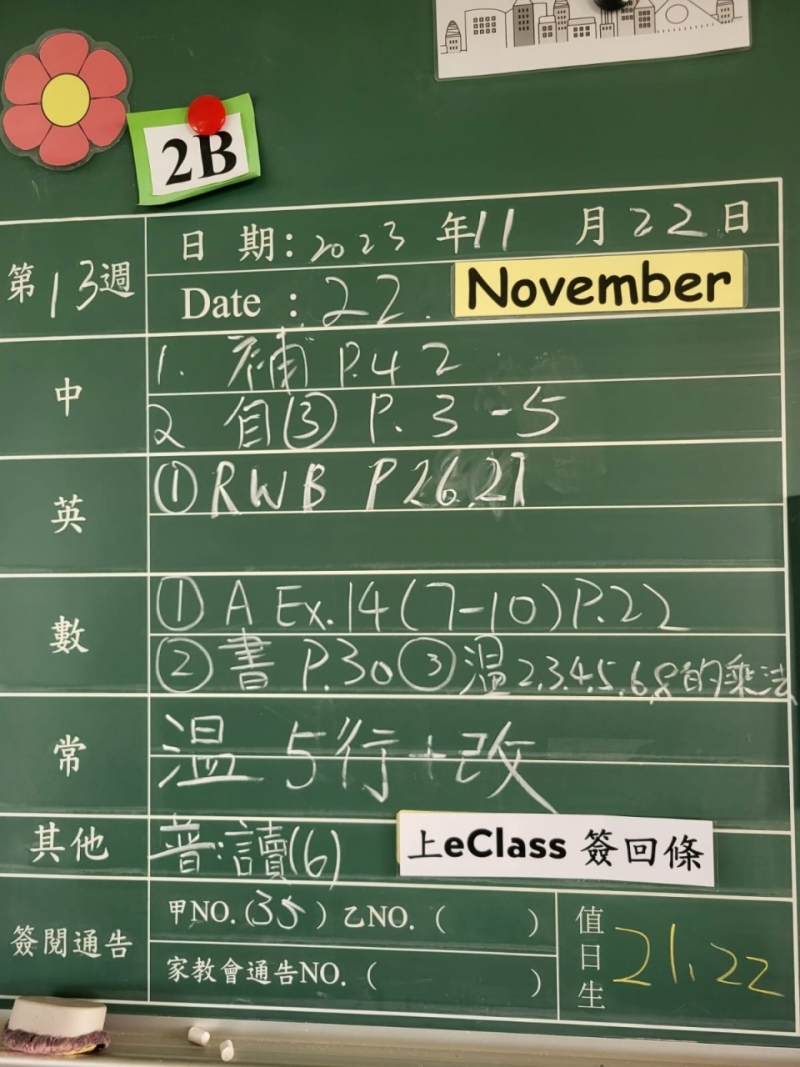 2B
第13週
日 期：2023 年11 月22日
Date : 22. November
中
1. 補 P.42
2 自③ P. 3 -5
英
① RWB P 26.27
數
① A Ex.14(7-10)P.22
② 書 P.30 ③ 温2.3.4.5.6.8的乘法
常
温 5行+改
其他
普:讀(6)
上eClass 簽回條
簽閱通告
甲NO.(35) 乙NO.( )
家教會通告NO.( )
值日生
21.22